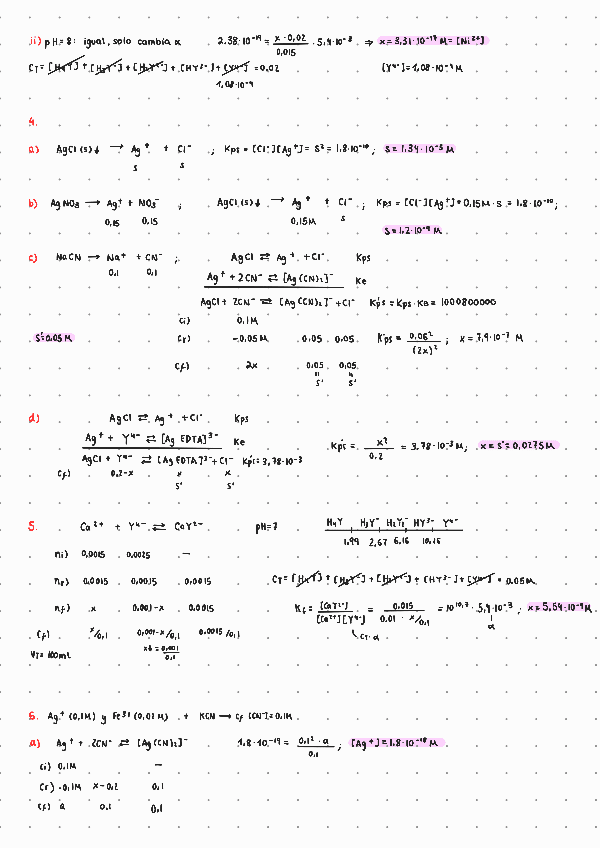 ii) pH=8: igual, solo cambia α 2.38·10⁻¹⁹ = (x · 0,02)/0,015 · 5,4·10⁻³ ⇒ x = 3,31·10⁻¹⁷ M = [Ni²⁺]
CT = [H₄Y] + [H₃Y⁻] + [H₂Y²⁻] + [HY³⁻] + [Y⁴⁻] = 0,02 [Y⁴⁻] = 1,08·10⁻⁴ M
1,08·10⁻⁴
4.
a) AgCl(s)↓ → Ag⁺ + Cl⁻ ; Kps = [Cl⁻][Ag⁺] = S² = 1,8·10⁻¹⁰ ; S = 1,34·10⁻⁵ M
s s
b) AgNO₃ → Ag⁺ + NO₃⁻ ; AgCl(s)↓ → Ag⁺ + Cl⁻ ; Kps = [Cl⁻][Ag⁺] = 0,15M · S = 1,8·10⁻¹⁰ ;
0,15 0,15 0,15M s S = 1,2·10⁻⁹ M
c) NaCN → Na⁺ + CN⁻ ; AgCl ⇄ Ag⁺ + Cl⁻ Kps
0,1 0,1 Ag⁺ + 2CN⁻ ⇄ [Ag(CN)₂]⁻ Ke
AgCl + 2CN⁻ ⇄ [Ag(CN)₂]⁻ + Cl⁻ K'ps = Kps · Ke = 1000800000
Ci) 0,1M
S'=0,05 M Cr) -0,05M 0,05 0,05 K'ps = 0,05²/(2x)² ; x = 7,9·10⁻⁷ M
Cf) 2x 0,05 0,05
" "
S' S'
d) AgCl ⇄ Ag⁺ + Cl⁻ Kps
Ag⁺ + Y⁴⁻ ⇄ [Ag EDTA]³⁻ Ke K'ps = x²/0,2 = 3,78·10⁻³ M ; x = S' = 0,0275 M
AgCl + Y⁴⁻ ⇄ [Ag EDTA]³⁻ + Cl⁻ K'ps = 3,78·10⁻³
Cf) 0,2-x x x
S' S'
5. Ca²⁺ + Y⁴⁻ ⇄ CaY²⁻ pH=7 H₄Y H₃Y⁻ H₂Y²⁻ HY³⁻ Y⁴⁻
1,99 2,67 6,16
ni) 0,0015 0,0025 —
nr) 0,0015 0,0015 0,0015 CT = [H₄Y] + [H₃Y⁻] + [H₂Y²⁻] + [HY³⁻] + [Y⁴⁻] = 0.05M
nf) x 0,001-x 0,0015 Kf = [CaY²⁻]/[Ca²⁺][Y⁴⁻] = 0,015/(0.01 · x/0,1) = 10^10,7 · 5,4·10⁻³ ; x = 5,54·10⁻⁹ M
Cf) x/0,1 0,001-x/0,1 0,0015/0,1 CT·α α
VT = 100mL x↓ = 0,001/0,1
6. Ag⁺ (0,1M) y Fe³⁺ (0,02 M) + KCN → Cf [CN⁻] = 0,1M
a) Ag⁺ + 2CN⁻ ⇄ [Ag(CN)₂]⁻ 1.8·10⁻¹⁹ = (0,1² · a)/0,1 ; [Ag⁺] = 1.8·10⁻¹⁸ M
Ci) 0,1M —
Cr) -0,1M x-0,2 0,1
Cf) a 0,1 0,1